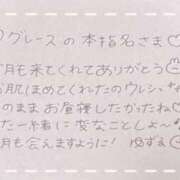 グレースの本指名さま♡
月も来てくれてありがとう
お肌ほめてくれたのウレシ
のままお昼寝したかったね♡
た一緒に変なことしよ〜
月も会えますように! ゆずき